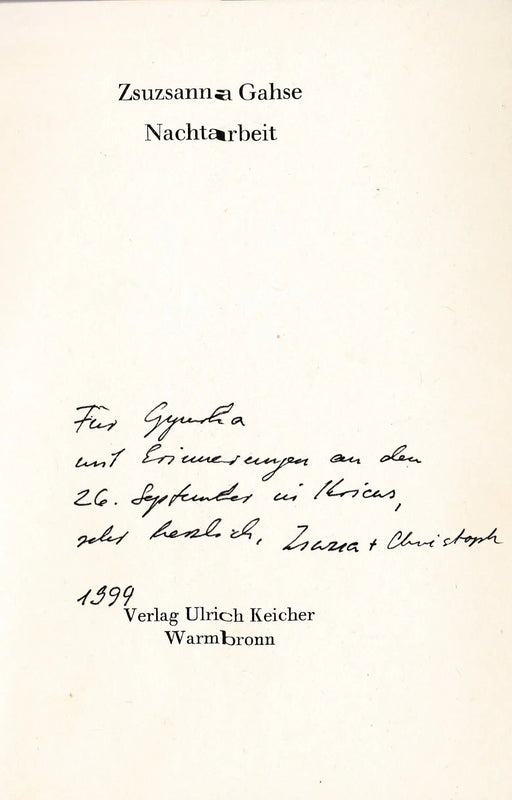 Zsuzsanna Gahse
Nachtarbeit
Für Gyurka
mit Erinnerungen an den
26. September in
sehr herzlich, Zsuzsa + Christoph
1999
Verlag Ulrich Keicher
Warmbronn